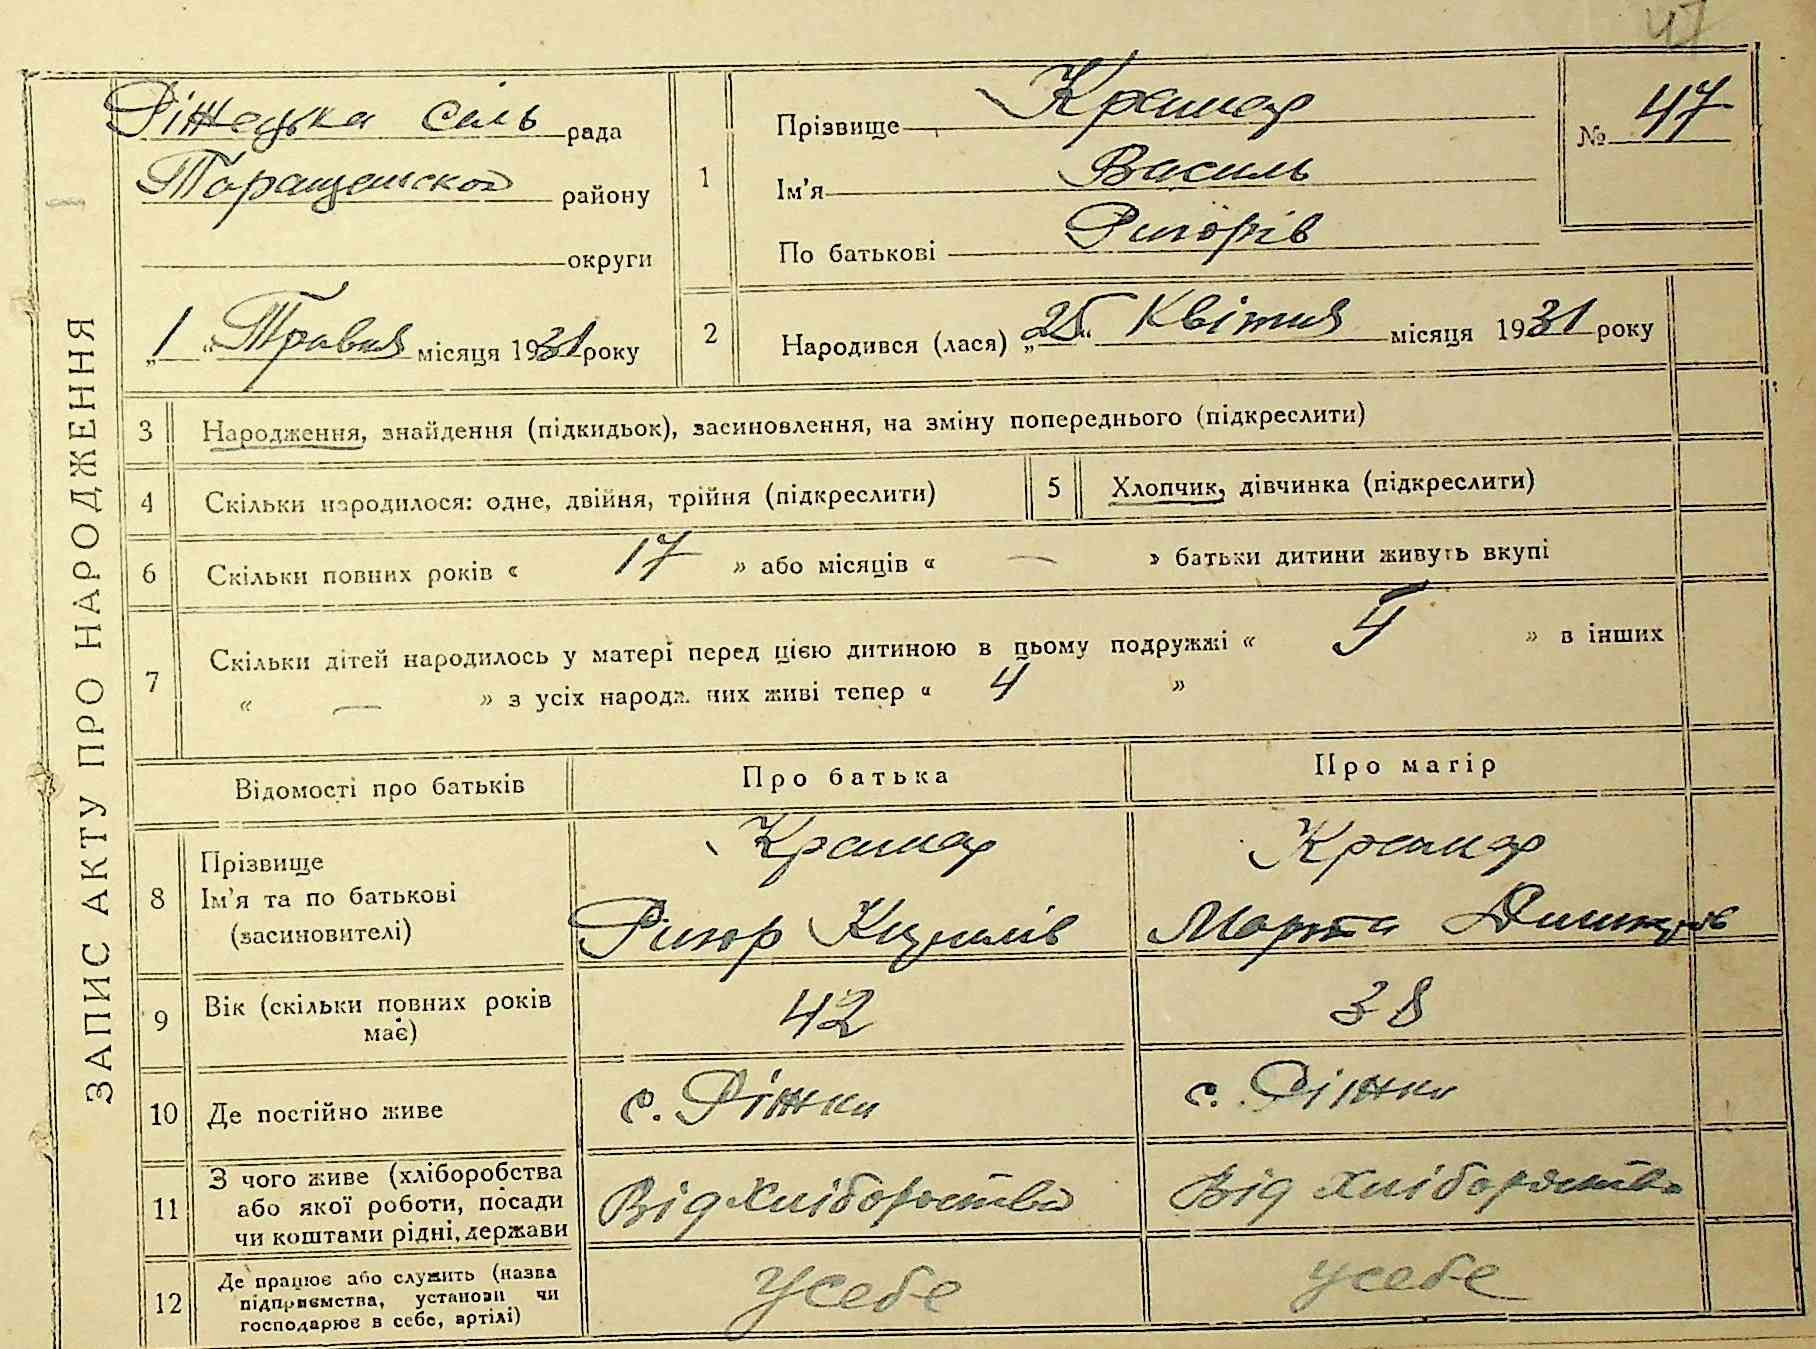 47
ЗАПИС АКТУ ПРО НАРОДЖЕННЯ
Ріжецька сіль рада
Таращанської району
округи
„1“ Травня місяця 1931 року
1
Прізвище Крамар
Ім'я Василь
По батькові Ригорів
№ 47
2
Народився (лася) „25“ Квітня місяця 1931 року
3 Народження, знайдення (підкидьок), засиновлення, на зміну попереднього (підкреслити)
4 Скільки народилося: одне, двійня, трійня (підкреслити)
5 Хлопчик, дівчинка (підкреслити)
6 Скільки повних років « 17 » або місяців « — » батьки дитини живуть вкупі
7 Скільки дітей народилось у матері перед цією дитиною в цьому подружжі « 5 » в інших
« — » з усіх народж них живі тепер « 4 »
Відомості про батьків Про батька Про матір
8 Прізвище
Ім'я та по батькові
(засиновителі)
Крамар
Ригор
Крамар
Марта
9 Вік (скільки повних років
має)
42 38
10 Де постійно живе с. Ріжки с. Ріжки
11 З чого живе (хліборобства
або якої роботи, посади
чи коштами рідні, держави
Від хліборобства Від хліборобства
12 Де працює або служить (назва
підприємства, установи чи
господарює в себе, артілі)
У себе у себе